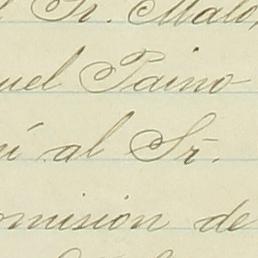 l Sr. Malo,
uel Paino
uí al Sr.
omision de